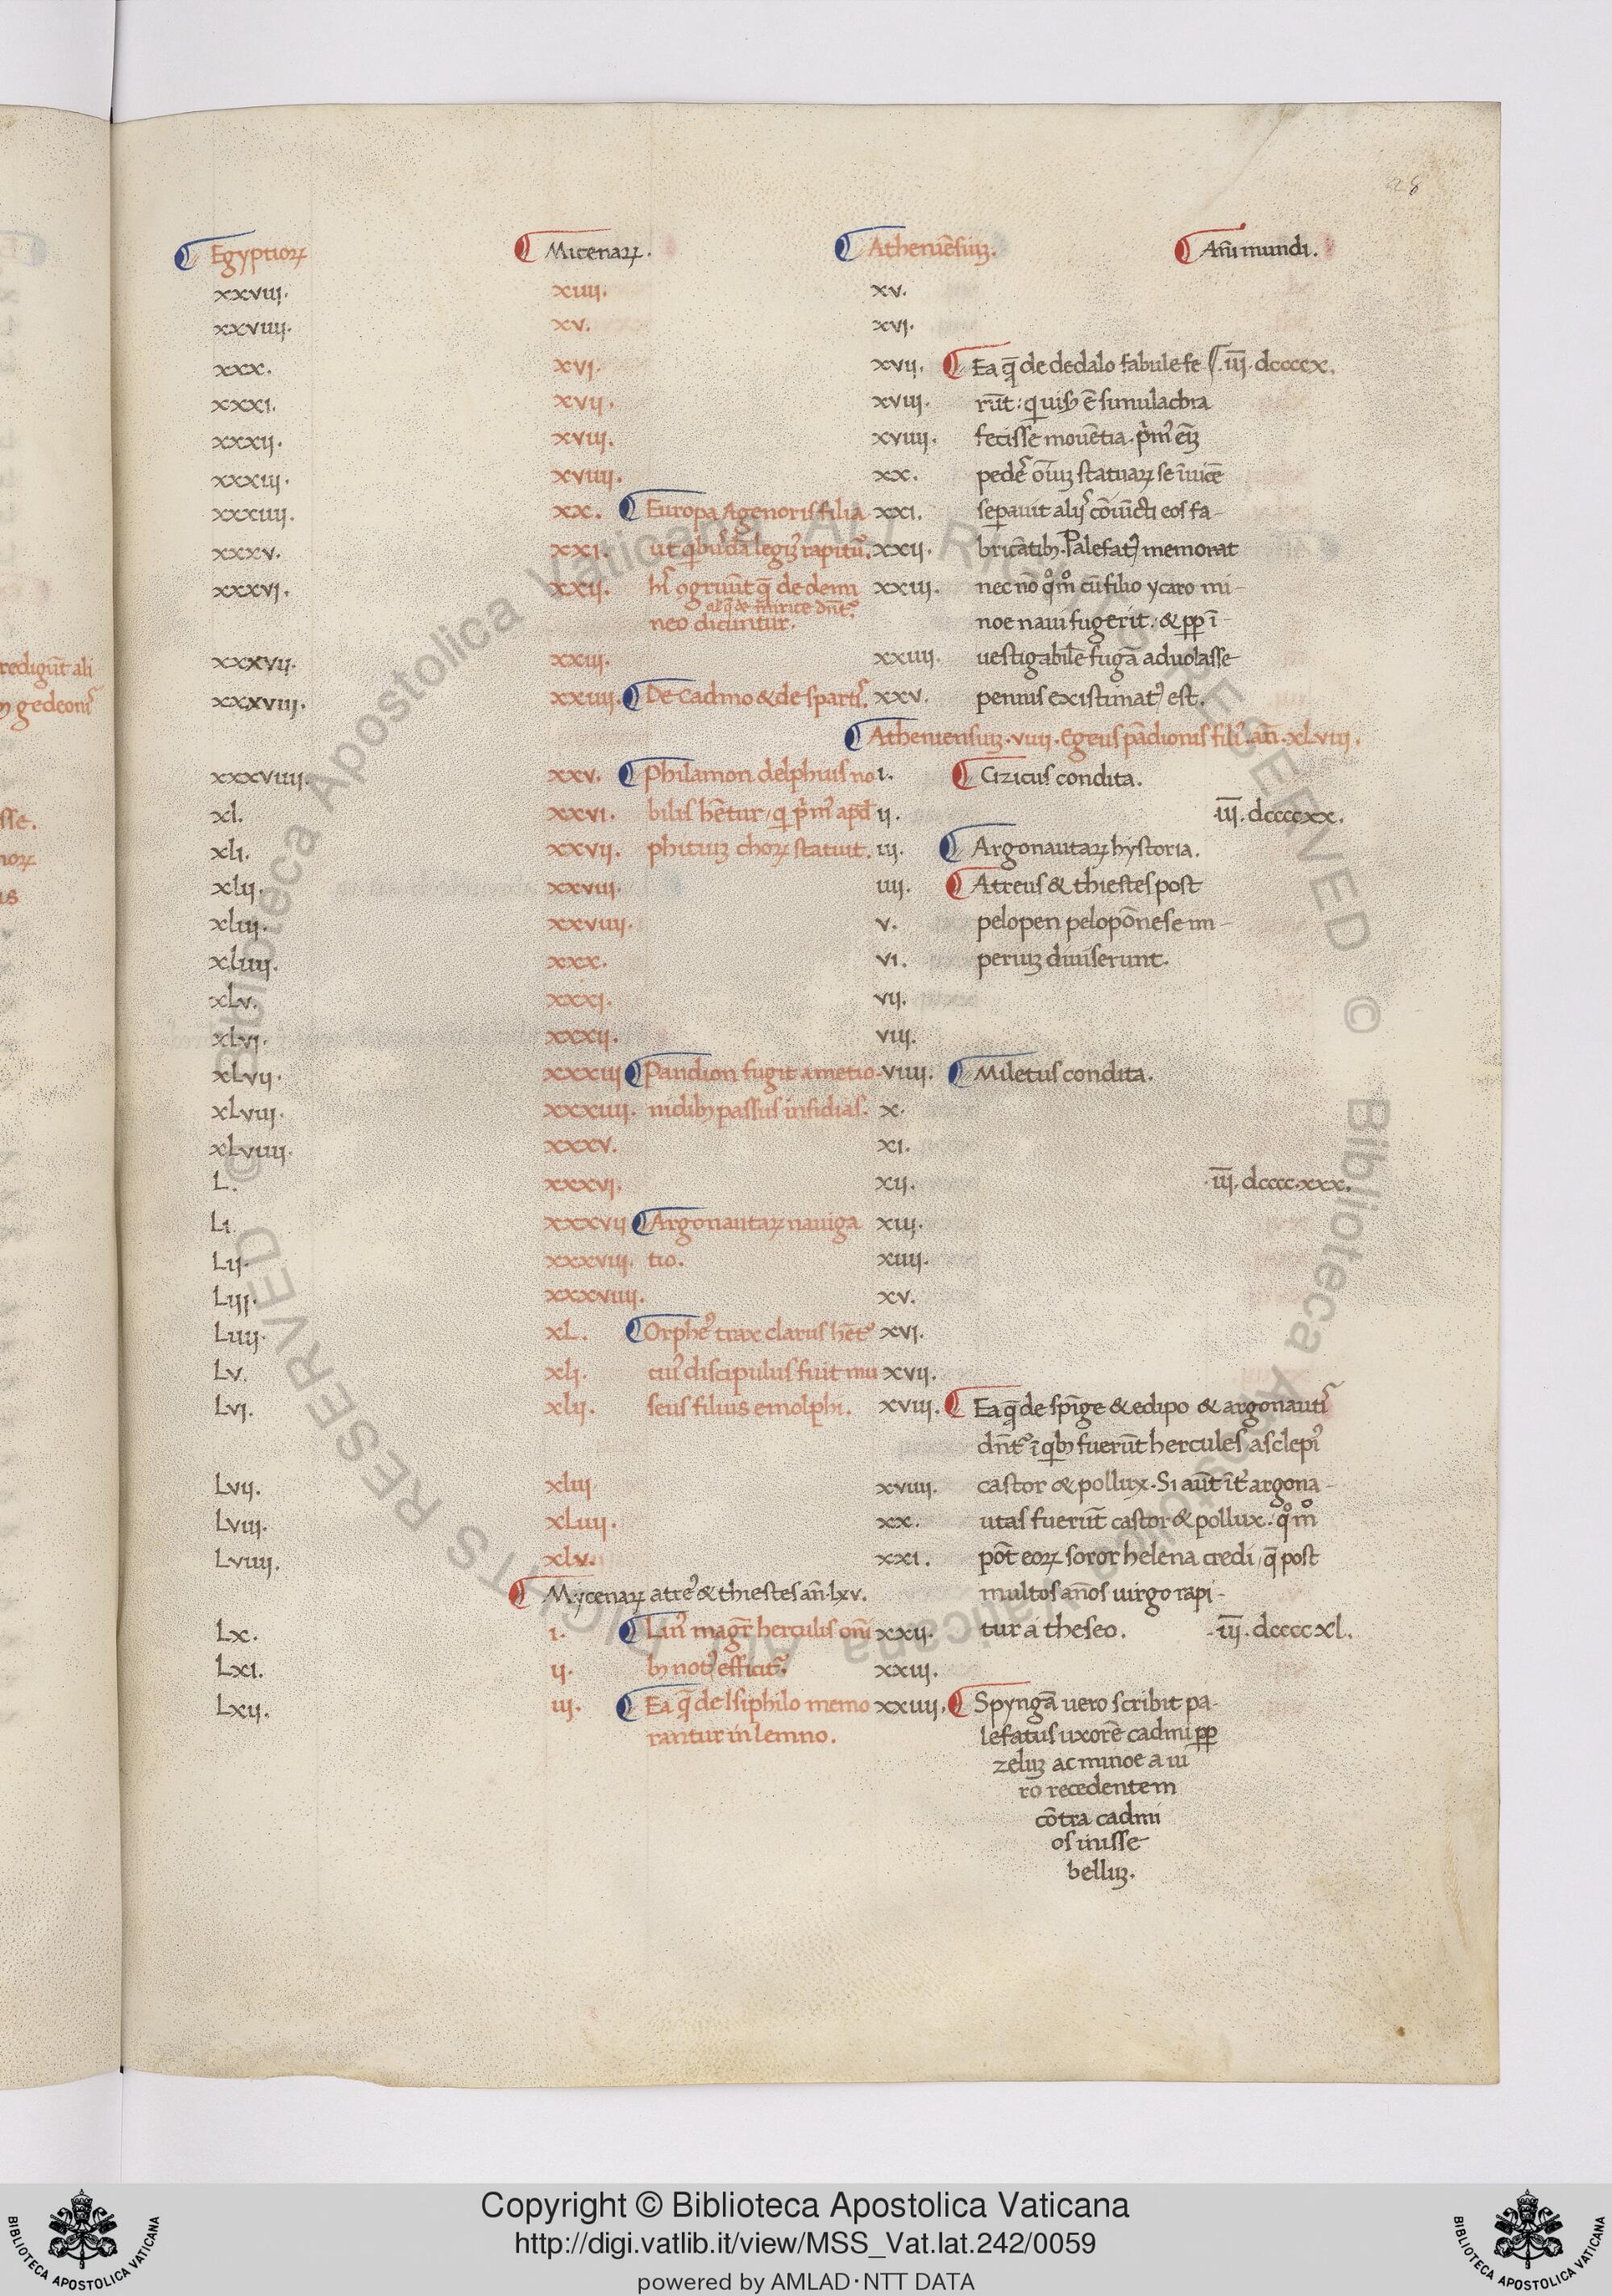 28
Egyptioꝝ Micenaꝝ. Atheniẽsiuꝫ. Añi mundi.
xxviij. xiiij. xv.
xxviiij. xv. xvi.
xxx. xvj. xvij. Ea q̃ de dedalo fabule fe .iij. dccccx.
xxxj. xvij. xviij. rũt: q uisꝫ ẽ simulachra
xxxij. xviij. xviiij. fecisse mouẽtia. p̃m᾿ eiꝫ
xxxiij. xviiij. xx. pedes᾿ oiuꝫ statuaꝝ se ĩuicẽ
xxxiiij. xx. Europa Agenoris filia xxi. separauit alijs᾿ cõiũcti eos fa-
xxxv. xxi. ut qbusdã legit᾿ rapitur᾿. xxij. bricãtibꝫ. Palefat᾿ memorat
xxxvi. xxij. his᾿ ɔgruũt q̃ de demi xxiij. nec nõ qͦmͦ cũ filio ycaro mi-
neo dicuntur. noe naui fugerit. & ꝓp ĩ-
xxxvij. xxiij. xxiiij. uestigabilẽ fugã aduolasse
xxxviij. xxiiij. De Cadmo & de sparti᾿. xxv. pennis existimat᾿ est.
Atheniensiuꝫ. viiij. Egeus pãdionis fili᾿. añ. xLviij.
xxxviiij. xxv. Philamon delphius no i. Cizicus condita.
xl. xxvi. bilis hẽtur, q p̃m᾿ apd ij. .iij. dccccxx.
xli. xxvij. phituꝫ choꝝ statuit. iij. Argonautaꝝ hystoria.
xlij. xxviij. iiij. Atreus & thiestes post
xliij. xxviiij. v. pelopen pelopõnese im-
xliiij. xxx. vi. periuꝫ diuiserunt.
xLv. xxxj. vij.
xLvi. xxxij. viij.
xLvij. xxxiij Pandion fugit a metio- viiij. Miletus condita.
xLviij. xxxiiij. nidibꝫ passus insidias. x.
xLviiij. xxxv. xi.
L. xxxvj. xij. .iij. dcccc.xxx.
Li. xxxvij Argonautaꝝ nauiga xiij.
Lij. xxxviij. tio. xiiij.
Liij. xxxviiij. xv.
Liiij. xL. Orphe᾿ trax clarus hẽt᾿ xvi.
Lv. xlj. cui᾿ discipulus fuit mu xvij.
Lvi. xlij. seus filius emolphi. xviij. Ea q̃ de spĩge & edipo & argonauti᾿
dñt᾿ ĩ qbꝫ fuerũt hercules asclepi᾿
Lvij. xliij xviiij. castor & pollux. Si aũt ĩt᾿ argona-
Lviij. xLiiij. xx. utas fuerũt castor & pollux. qͦmͦ
Lviiij. xlv. xxi. põt eoꝝ soror helena credi, q̃ post
Mycenaꝝ atre᾿ & thiestes añ. lxv. multos ãnos uirgo rapi-
Lx. i. Lin᾿ magr̃ herculis oñi xxij. tur a theseo. .iij. dccccxl.
Lxi. ij. bꝫ not᾿ efficit᾿. xxiij.
Lxij. iij. Ea q̃ de Isiphilo memo xxiiij. Spyngã uero scribit pa-
rantur in lemno. lefatus uxorẽ cadmi ꝓp
zeluꝫ ac minoe a ui
ro recedentem
cõtra cadmi
os iniisse
belluꝫ.
redigũt ali
ꝫ gedeoni᾿
sse.
noꝝ
us
Copyright © Biblioteca Apostolica Vaticana
http://digi.vatlib.it/view/MSS_Vat.lat.242/0059
powered by AMLAD·NTT DATA
BIBLIOTECA APOSTOLICA VATICANA
BIBLIOTECA APOSTOLICA VATICANA
© Biblioteca Apostolica Vaticana ALL RIGHTS RESERVED © Biblioteca Apostolica Vaticana ALL RIGHTS RESERVED